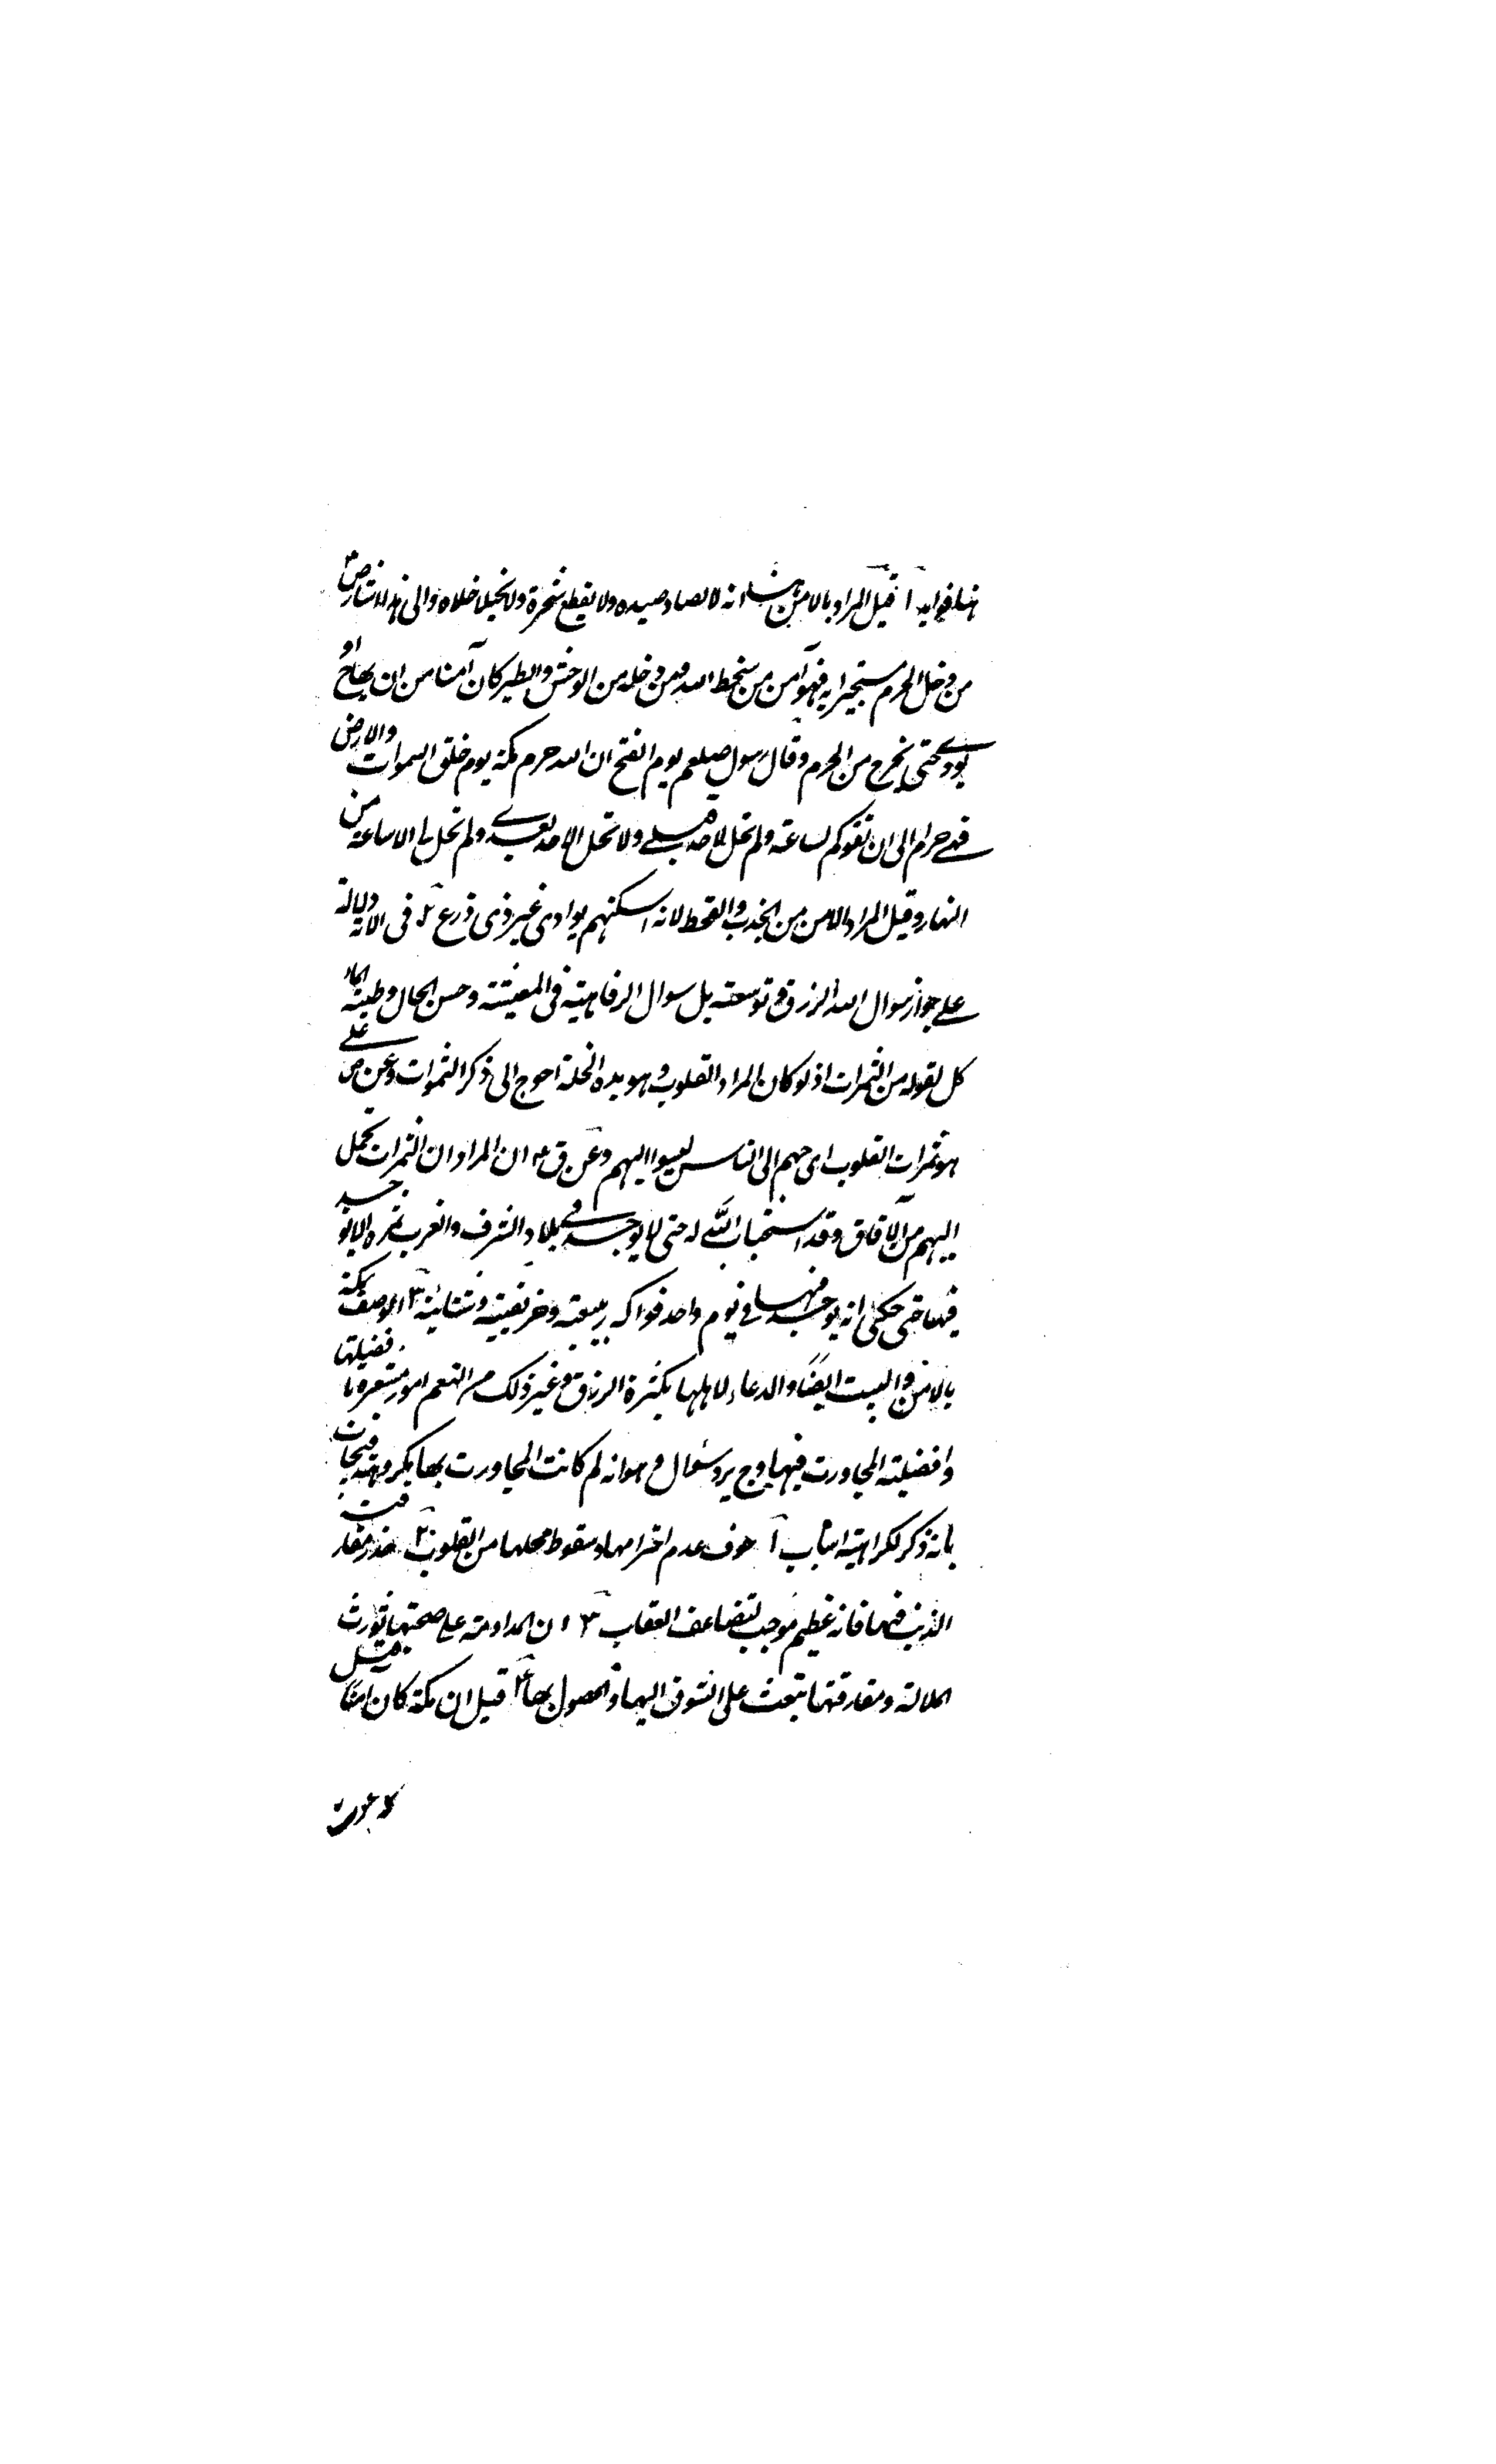 هنا فوايد آ قيل المراد بالامن هنا انه لا يصاد صيده ولا يقطع شجره ولا يختلا خلاه والى هذا اشار ص ع
من دخل الحرم مستجيرا به فهو آمن من سخط الله ومن دخله من الوحش والطير كان آمنا من ان يهاج او
يوذى حتى يخرج من الحرم وقال رسول صلعم يوم الفتح ان الله حرم مكة يوم خلق السموات والارض
فهى حرام الى ان تقوم لساعة ولم تحل لاحد قبلى ولا تحل لاحد بعدى ولم تحل لى الا ساعة من
النهار وقيل المراد الامن من الجذب والقحط لانه اسكنهم بوادى غير ذى زرع ٢ فى الاية دلالة
على جواز سوال الله الرزق وتوسعته بل سوال الرفاهية فى المعيشة وحسن الحال وطيبة
كل لقوله من الثمرات اذ لو كان المراد القلوب وهو بده الخلة احوج الى ذكر الثمرات وعن ص
هو ثمرات القلوب اى حبهم الى الناس ليسوا اليهم وعن ق ع ان المراد ان الثمرات تحمل
اليهم من الآفاق وقد استجاب الله له حتى لا يوجد فى بلاد الشرق والغرب ثمرة الا يوجد
فيها حتى حكى انه يوجد فيها فى يوم واحد فواكه ربيعية وخريفية وشتائية ٣ الوصف مكة
بالامن والبيت ايضا والدعاء لاهلها بكثرة الرزق وغير ذلك من النعم امور مشعرة با فضيلتها
وافضلية المجاورت فيها وح يرد سئوال وهو انه لم كانت المجاورت بها مكروهة فيجاب
بانه ذكر لكراهية اسباب آ خوف عدم احترامها وسقوط محلها من القلوب ٢ حذر مقارفت
الذنب فيها فانه عظيم موجب لتضاعف العقاب ٣ ان المداومة على صحبتها تورث
الملالة ومفارقتها تبعث على الشوق اليها والحصول بها ٤ قيل ان مكة كان آمنا قبل